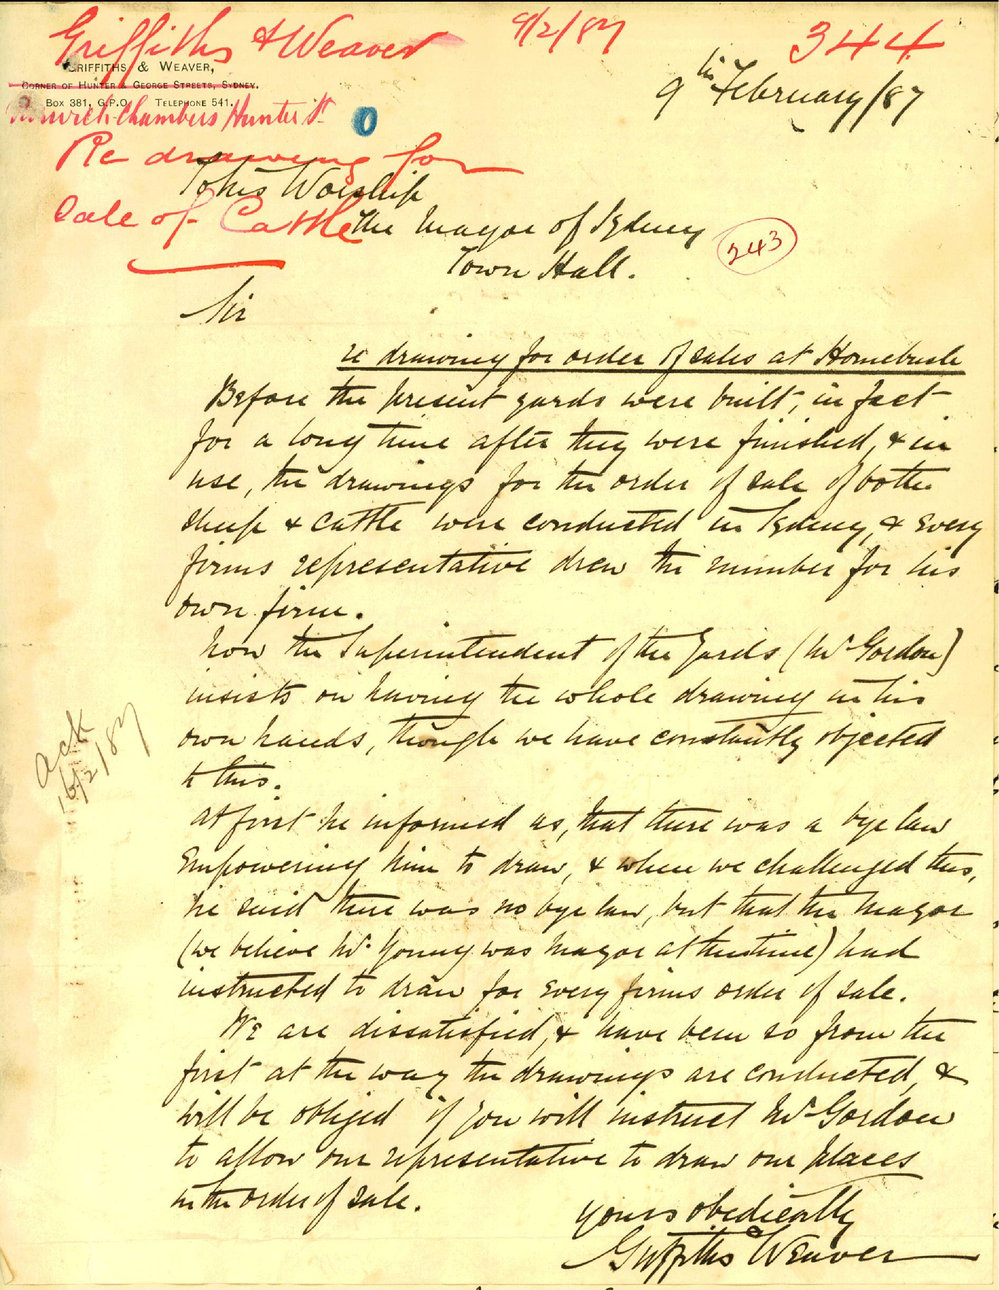 Griffiths & Weaver
9/2/87
344
GRIFFITHS & WEAVER,
CORNER OF HUNTER & GEORGE STREETS, SYDNEY.
BOX 381, G.P.O. TELEPHONE 541.
Chambers Hunter St
0
9th February/87
Re drawing for
Sale of Cattle
To his Worship
The Mayor of Sydney
Town Hall.
243
Sir
re drawing for order of sales at Homebush
Before the present yards were built, in fact
for a long time after they were finished, & in
use, the drawings for the order of sale of both
sheep & cattle were conducted in Sydney, & every
firms representative drew the number for his
own firm.
Now the Superintendent of the Yards (Mr Gordon)
insists on having the whole drawing in his
own hands, though we have constantly objected
to this.
ack
16/2/87
At first he informed us, that there was a bye law
empowering him to draw, & when we challenged this,
he said there was no bye law, but that the Mayor
(we believe Mr Young was Mayor at thistime) had
instructed to draw for every firms order of sale.
We are dissatisfied, & have been so from the
first at the way the drawings are conducted, &
will be obliged if you will instruct Mr Gordon
to allow our representative to draw our places
in the order of sale.
yours obediently
Griffiths & Weaver